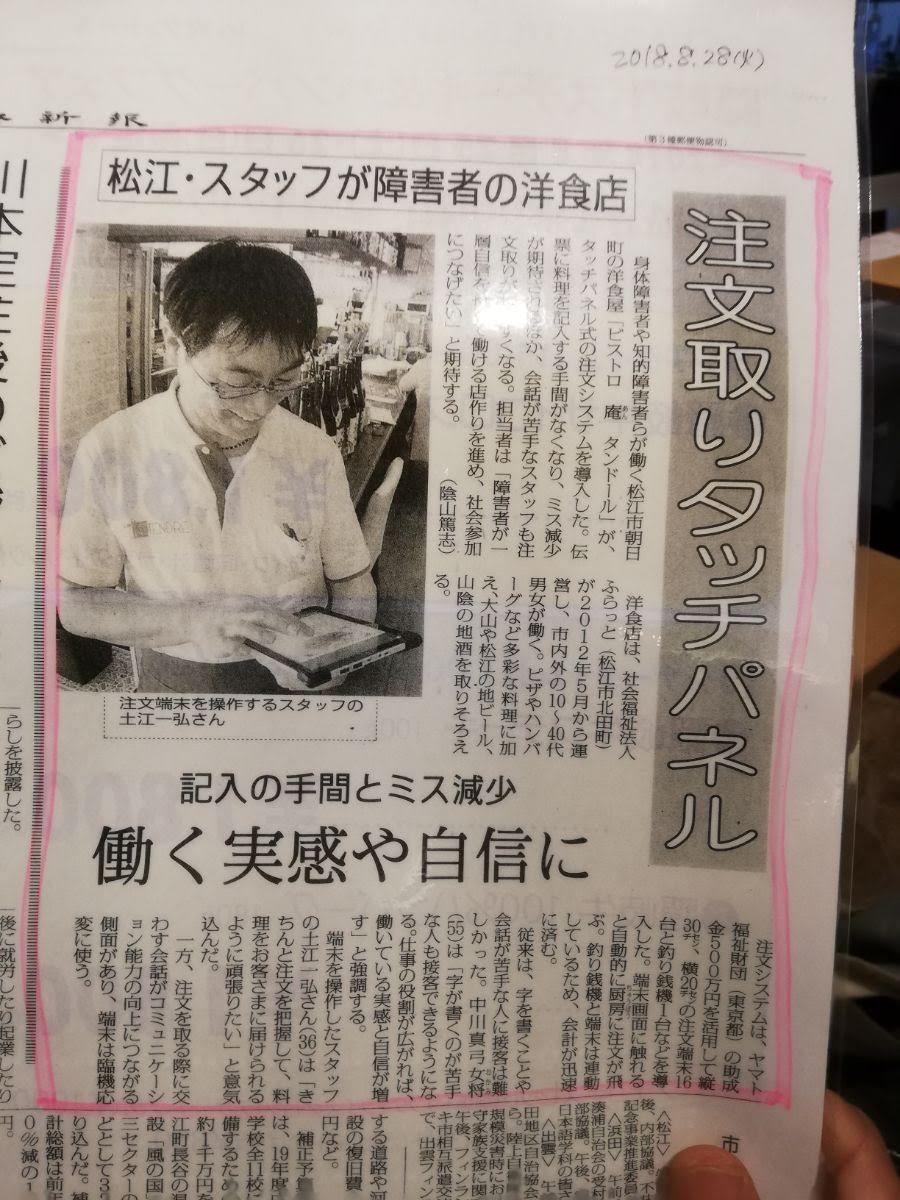 2018.8.28(火)
新報
（第3種郵便物認可）
注文取りタッチパネル
松江・スタッフが障害者の洋食店
身体障害者や知的障害者らが働く松江市朝日
町の洋食屋「ビストロ　庵　タンドール」が、
タッチパネル式の注文システムを導入した。伝
票に料理を記入する手間がなくなり、ミス減少
が期待されるほか、会話が苦手なスタッフも注
文取りがしやすくなる。担当者は「障害者が一
層自信を持って働ける店作りを進め、社会参加
につなげたい」と期待する。　（陰山篤志）
洋食店は、社会福祉法人
ふらっと（松江市北田町）
が２０１２年５月から運
営し、市内外の10～40代
男女が働く。ピザやハンバ
ーグなど多彩な料理に加
え、大山や松江の地ビール、
山陰の地酒を取りそろえ
る。
注文端末を操作するスタッフの
土江一弘さん
記入の手間とミス減少
働く実感や自信に
注文システムは、ヤマト
福祉財団（東京都）の助成
金５００万円を活用して縦
30㌢、横20㌢の注文端末16
台と釣り銭機１台などを導
入した。端末画面に触れる
と自動的に厨房に注文が飛
ぶ。釣り銭機と端末は連動
しているため、会計が迅速
に済む。
従来は、字を書くことや
会話が苦手な人に接客は難
しかった。中川真弓女将
(55)は「字が書くのが苦手
な人も接客できるようにな
る。仕事の役割が広がれば、
働いている実感と自信が増
す」と強調する。
端末を操作したスタッフ
の土江一弘さん(36)は「き
ちんと注文を把握して、料
理をお客さまに届けられる
ように頑張りたい」と意気
込んだ。
一方、注文を取る際に交
わす会話がコミュニケーシ
ョン能力の向上につながる
側面があり、端末は臨機応
変に使う。
らしを披露した。
後に就労したり起業したり